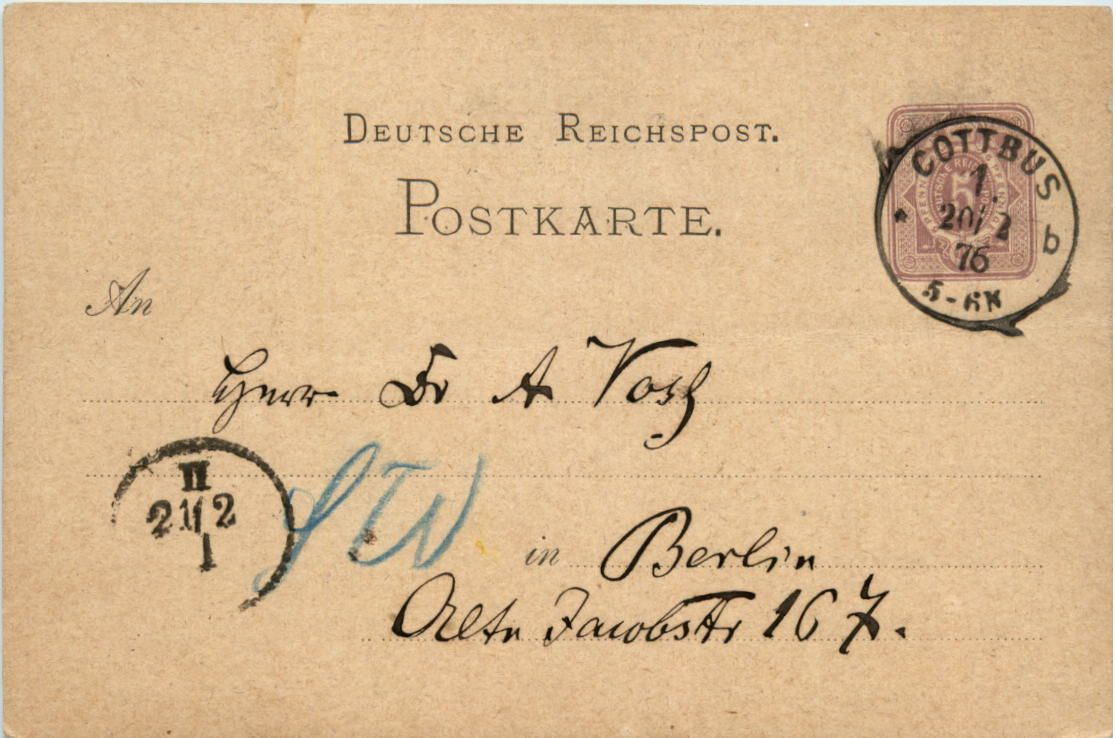 DEUTSCHE REICHSPOST.
POSTKARTE.
COTTBUS
1.
20/2
76
5-6N
* b
An
Herr Dr A Voß
II
21/2
1
SW
in Berlin
Alte Jacobstr 167.